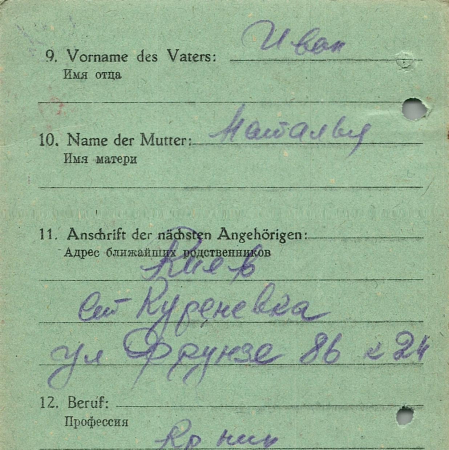 9. Vorname des Vaters: Иван
Имя отца
10. Name der Mutter: Наталья
Имя матери
11. Anschrift der nächsten Angehörigen:
Адрес ближайших родственников
Киев
ст Куреневка
ул Фрунзе 86 к 24
12. Beruf:
Профессия